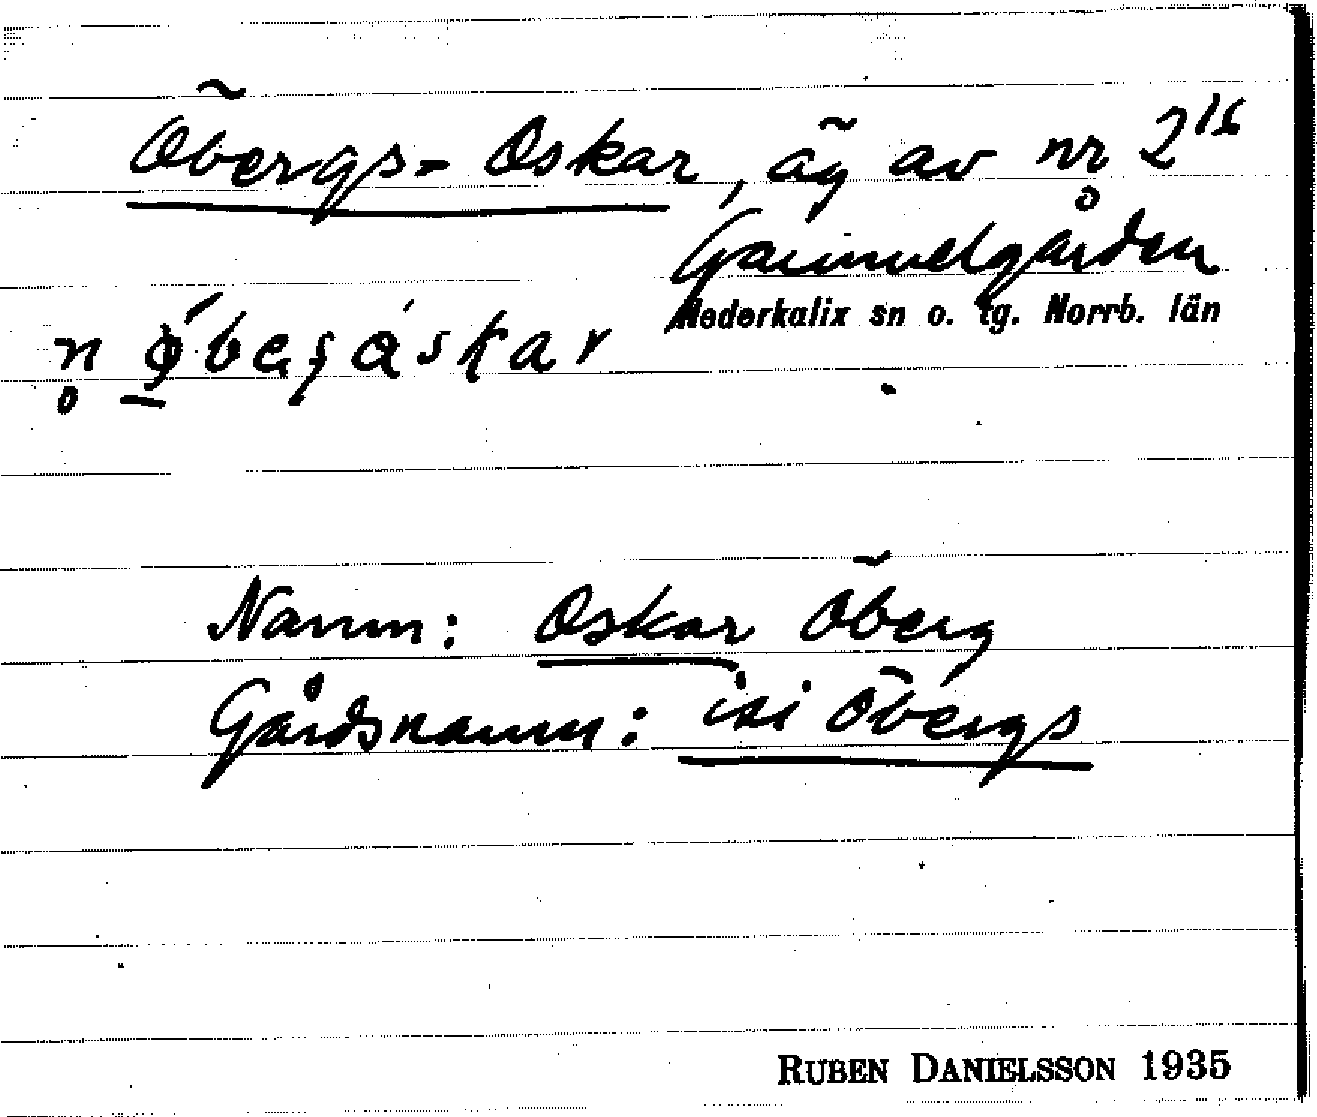 Öbergs-Oskar, äg av nr 2¹⁶
Gammelgården
Nederkalix sn o. tg. Norrb. län
Namn: Oskar Öberg
Gårdsnamn: ini Öbergs
RUBEN DANIELSSON 1935